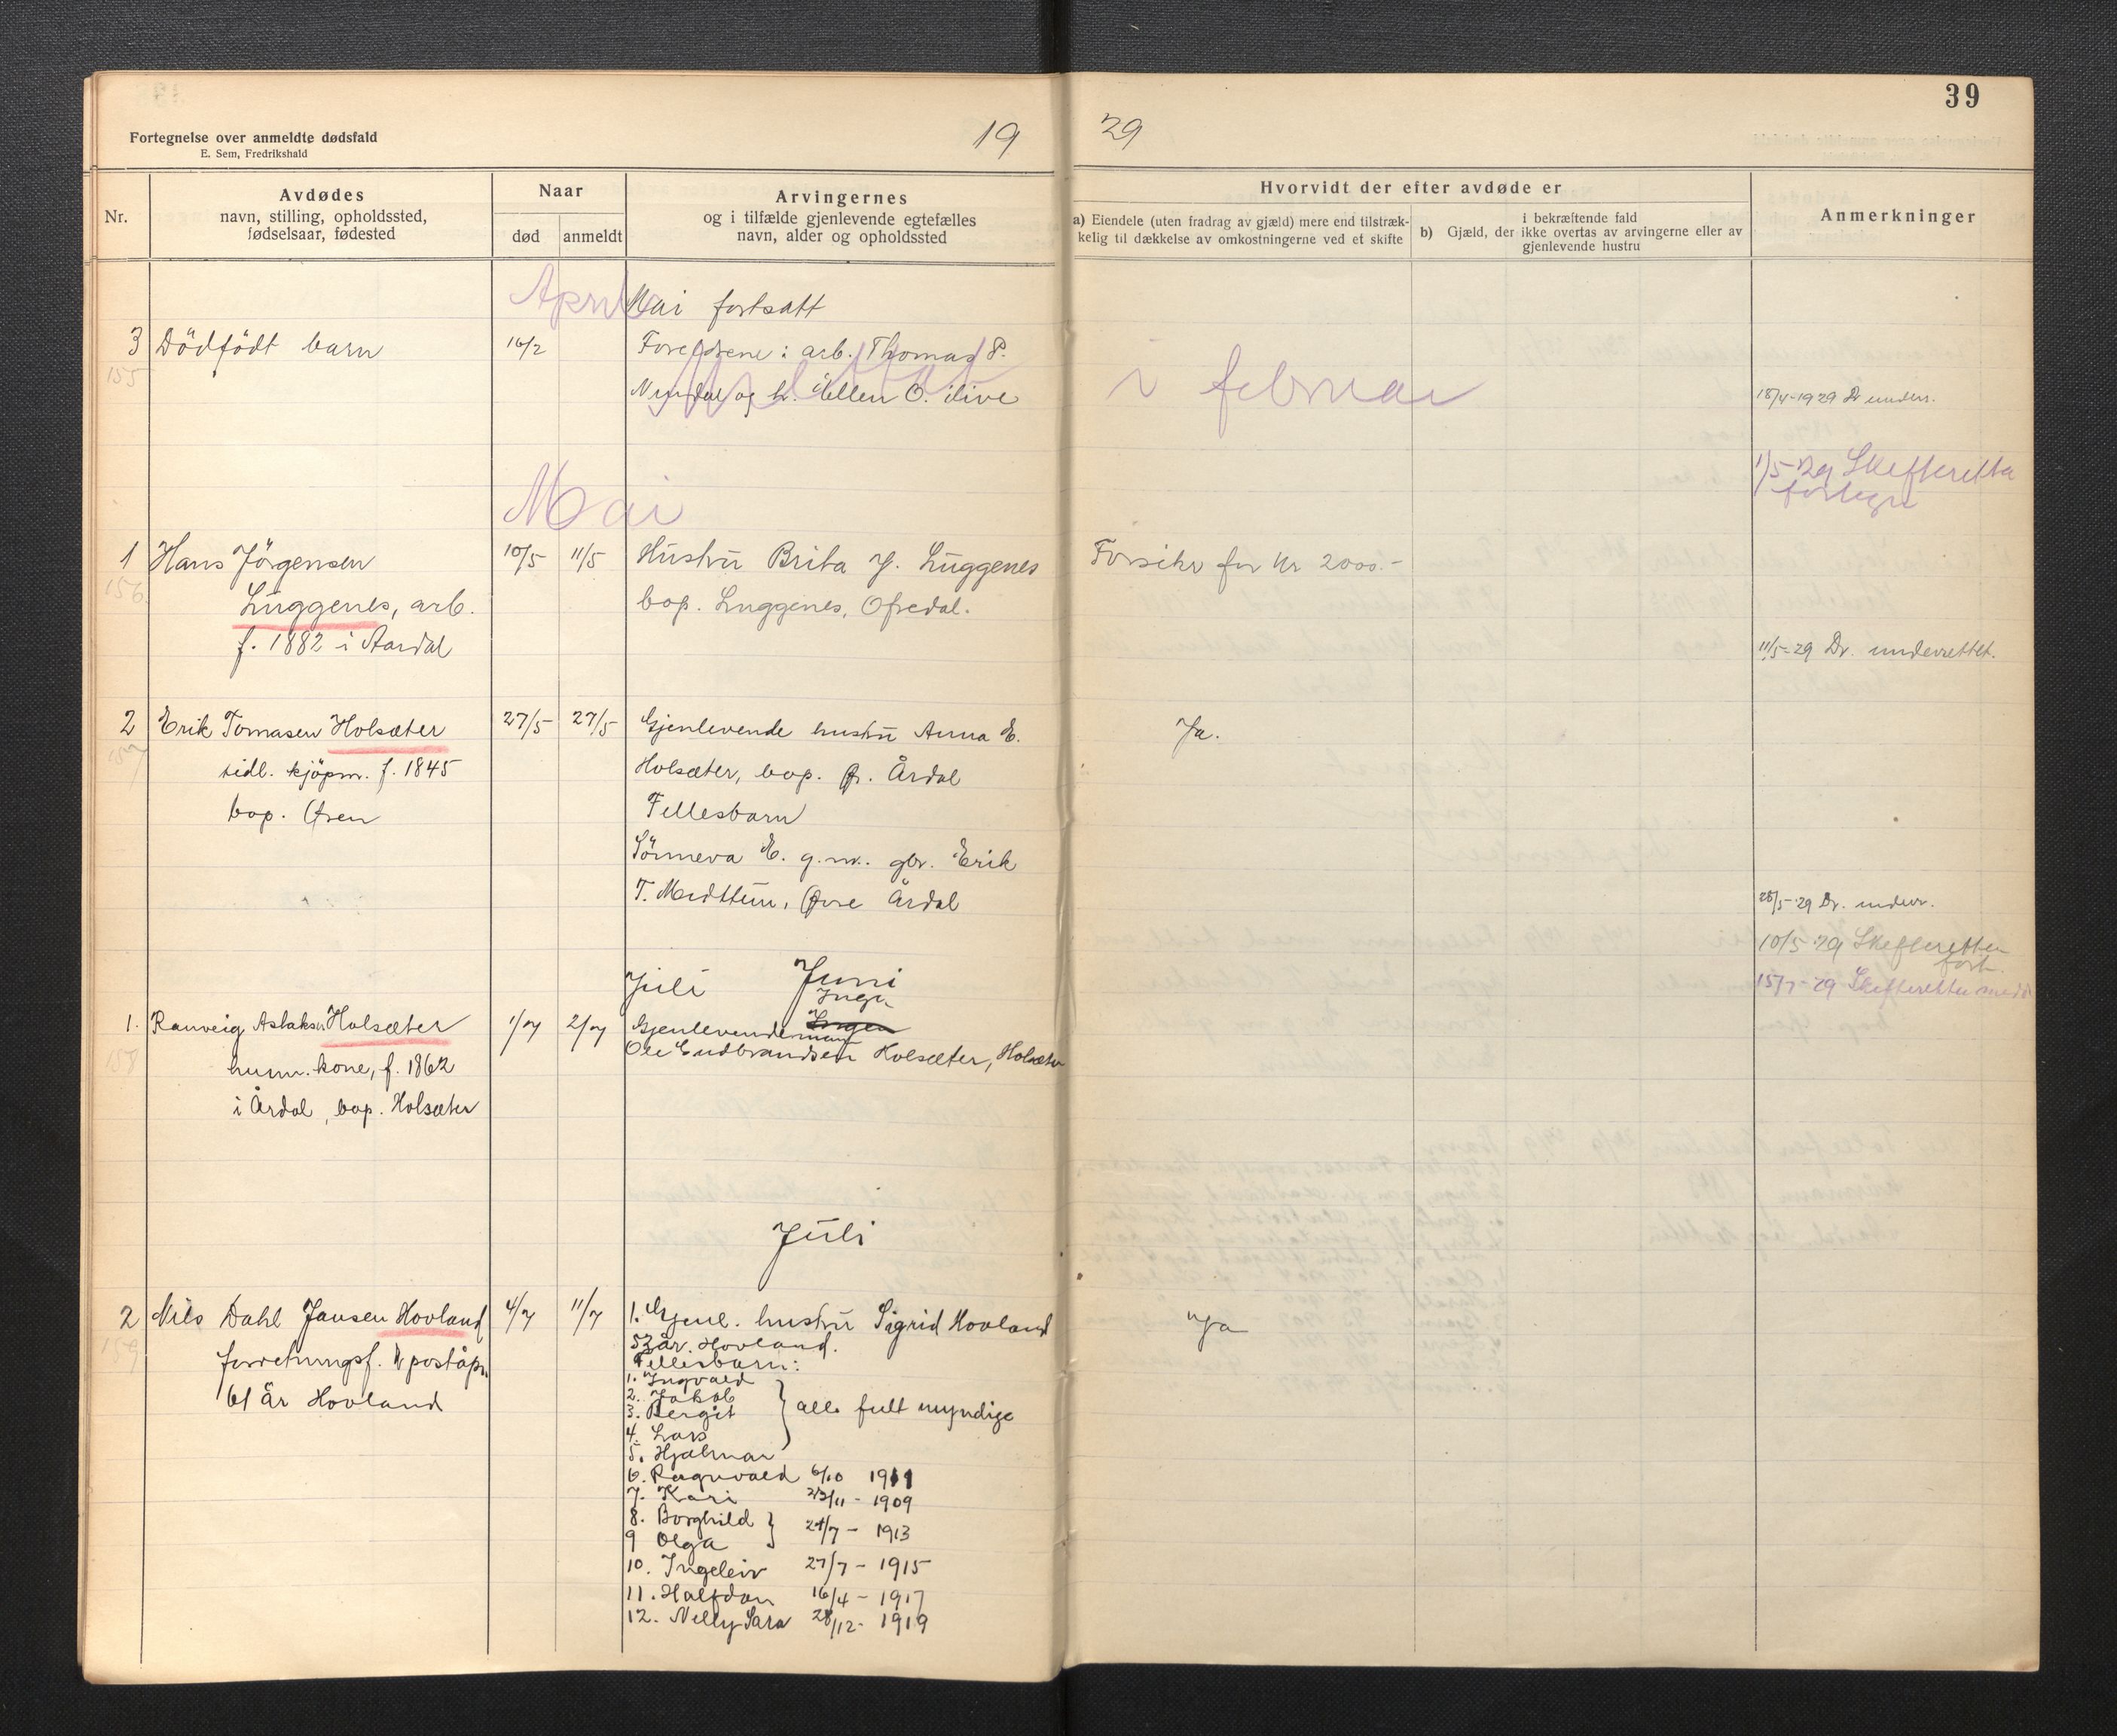 39
Fortegnelse over anmeldte dødsfald
E. Sem, Fredrikshald
19 29
Nr.
Avdødes
navn, stilling, opholdssted,
fødselsaar, fødested
Naar
død anmeldt
Arvingernes
og i tilfælde gjenlevende egtefælles
navn, alder og opholdssted
Hvorvidt der efter avdøde er
a) Eiendele (uten fradrag av gjæld) mere end tilstræk-
kelig til dækkelse av omkostningerne ved et skifte
i bekræftende fald
b) Gjæld, der ikke overtas av arvingerne eller av
gjenlevende hustru
Anmerkninger
April
Mai fortsatt
3 Dödfödt barn 16/2 Foreldrene: arb. Thomas P.
155
og h. Ellen O. ibid
i februar
18/4-1929 Dr underr.
1/5-29 Skifteretten
fortegn
Mai
1 Hans Jörgensen 10/5 11/5 Hustru Brita J. Luggenes Forsikr for Kr 2000.-
156
Luggenes, arb. bop. Luggenes, Ofredal.
f. 1882 i Aardal
11/5-29 Dr. underrettet.
2 Erik Tomasen Holsæter 27/5 27/5 Gjenlevende hustru Anna E. Ja.
157
tidl. kjöpm. f. 1845 Holsæter, bop. Ø. Årdal
bop. Øren Fellesbarn
Sönneva E. g.m. gbr. Erik
T. Midttun, Øvre Årdal
28/5-29 Dr. underr.
10/5 29 Skifteretten
fort.
15/7-29 Skifteretten medd
Juli Juni
Ingen
1. Ranveig Aslaksen Holsæter 1/7 2/7 Gjenlevende mann
158
Ole Gudbrandsen Holsæter, Holsæter
husm. kone, f. 1862
i Årdal, bop. Holsæter
Juli
2 Nils Dahl Jansen Hovland 4/7 11/7 1. Gjenl. hustru Sigrid Hovland Ja
159
53 år. Hovland.
forretningsf. & poståpn.
61 år Hovland
Fellesbarn:
1. Ingvald
2. Jakob
3. Bergit } alle fult myndige
4. Lars
5. Hjalmar
6. Ragnvald 6/10 1911
7. Kari 23/11 - 1909
8. Borghild } 24/7 - 1913
9 Olga
10. Ingeleiv 27/7 - 1915
11. Halfdan 16/4 - 1917
12. Nelly Sara 28/12 - 1919